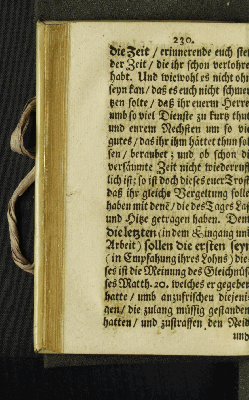 230.
die Zeit / erinnerende euch stet
der Zeit / die ihr schon verlohre
habt. Und wiewohl es nicht ohn
seyn kan / daß es euch nicht schmer
tzen solte / daß ihr euerm Herrn
umb so viel Dienste zu kurtz thut
und eurem Nechsten um so vie
gutes / das ihr ihm hättet thun sol
sen / beraubet; und ob schon di
versäumte Zeit nicht wiederruff
lich ist; so ist doch dieses euer Trost
daß ihr gleiche Vergeltung solle
haben mit denē / die des Tages Las
und Hitze getragen haben. Denn
die letzten (in dem Eingang und
Arbeit) sollen die ersten seyn
(in Empfahung ihres Lohns) die-
ses ist die Meinung des Gleichnüs-
ses Matth. 20. welches er gegeben
hatte / umb anzufrischen diejeni-
gen / die zulang müssig gestanden
hatten / und zustraffen den Neid
und